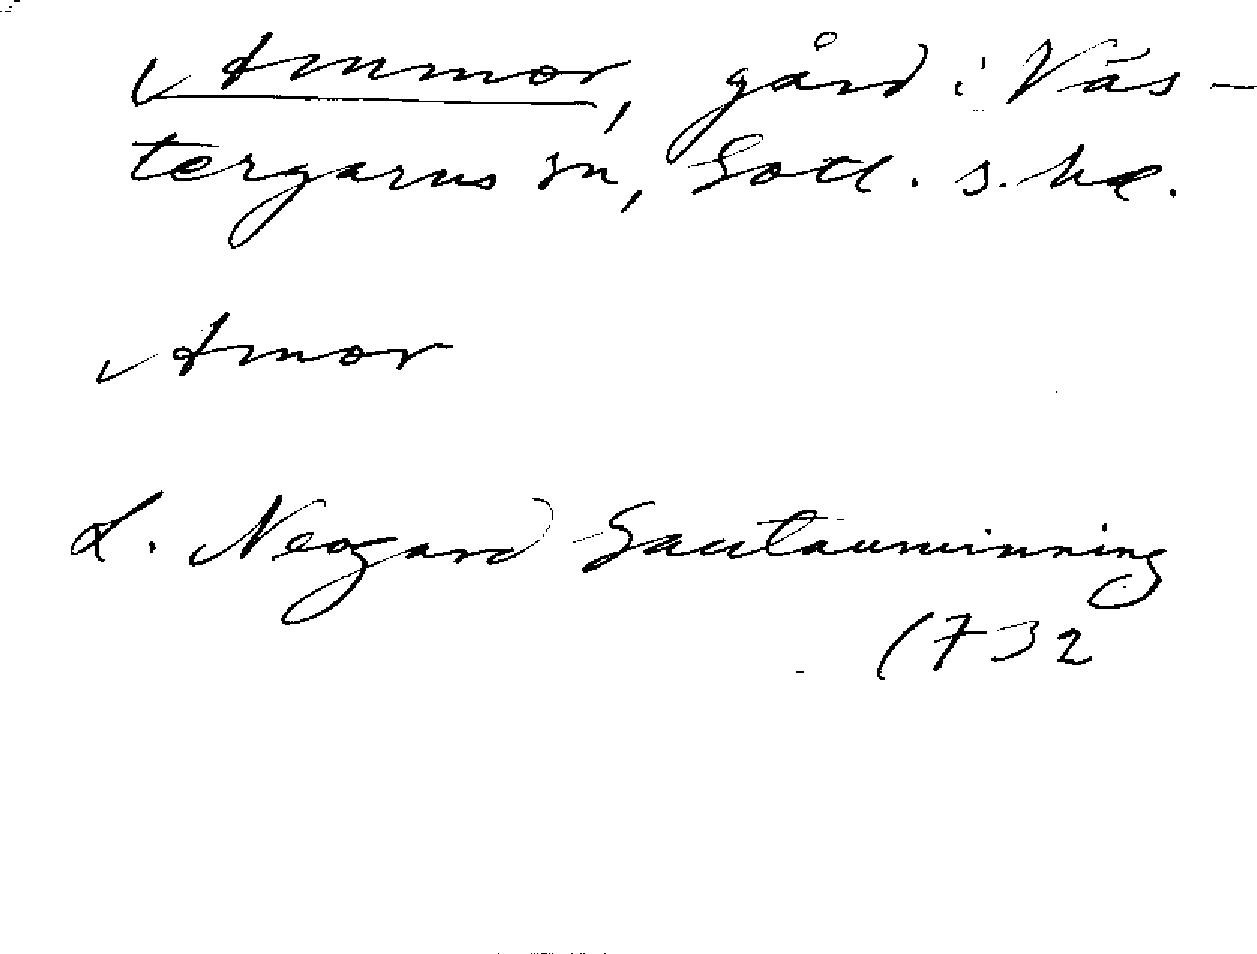 Ammor, gård i Väs-
tergarns sn, Gotl. s. hd.
Amor
L. Neogard Gautauminning
1732